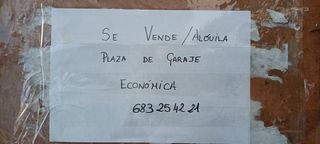 SE VENDE/ALQUILA
PLAZA DE GARAJE
ECONÓMICA
683 25 42 21